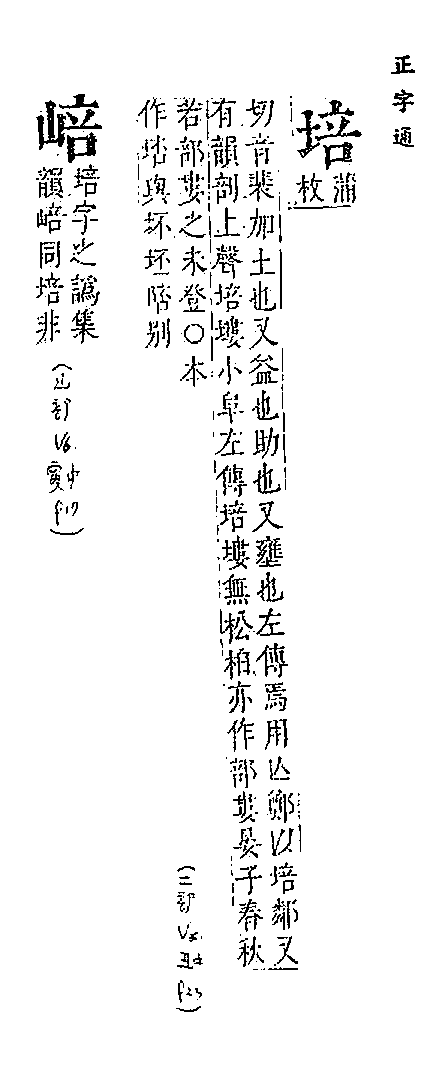 正字通
培
蒲
枚
切音裴加土也又益也助也又壅也左傳焉用亾鄭以培鄰又
有韻剖上聲培塿小阜左傳培塿無松柏亦作部婁晏子春秋
若部婁之未登○本
作與坏坯陪别
(土部 V5. 丑中 P23)
㟝
培字之譌集
韻㟝同培非
(山部 V6. 寅中 P17)